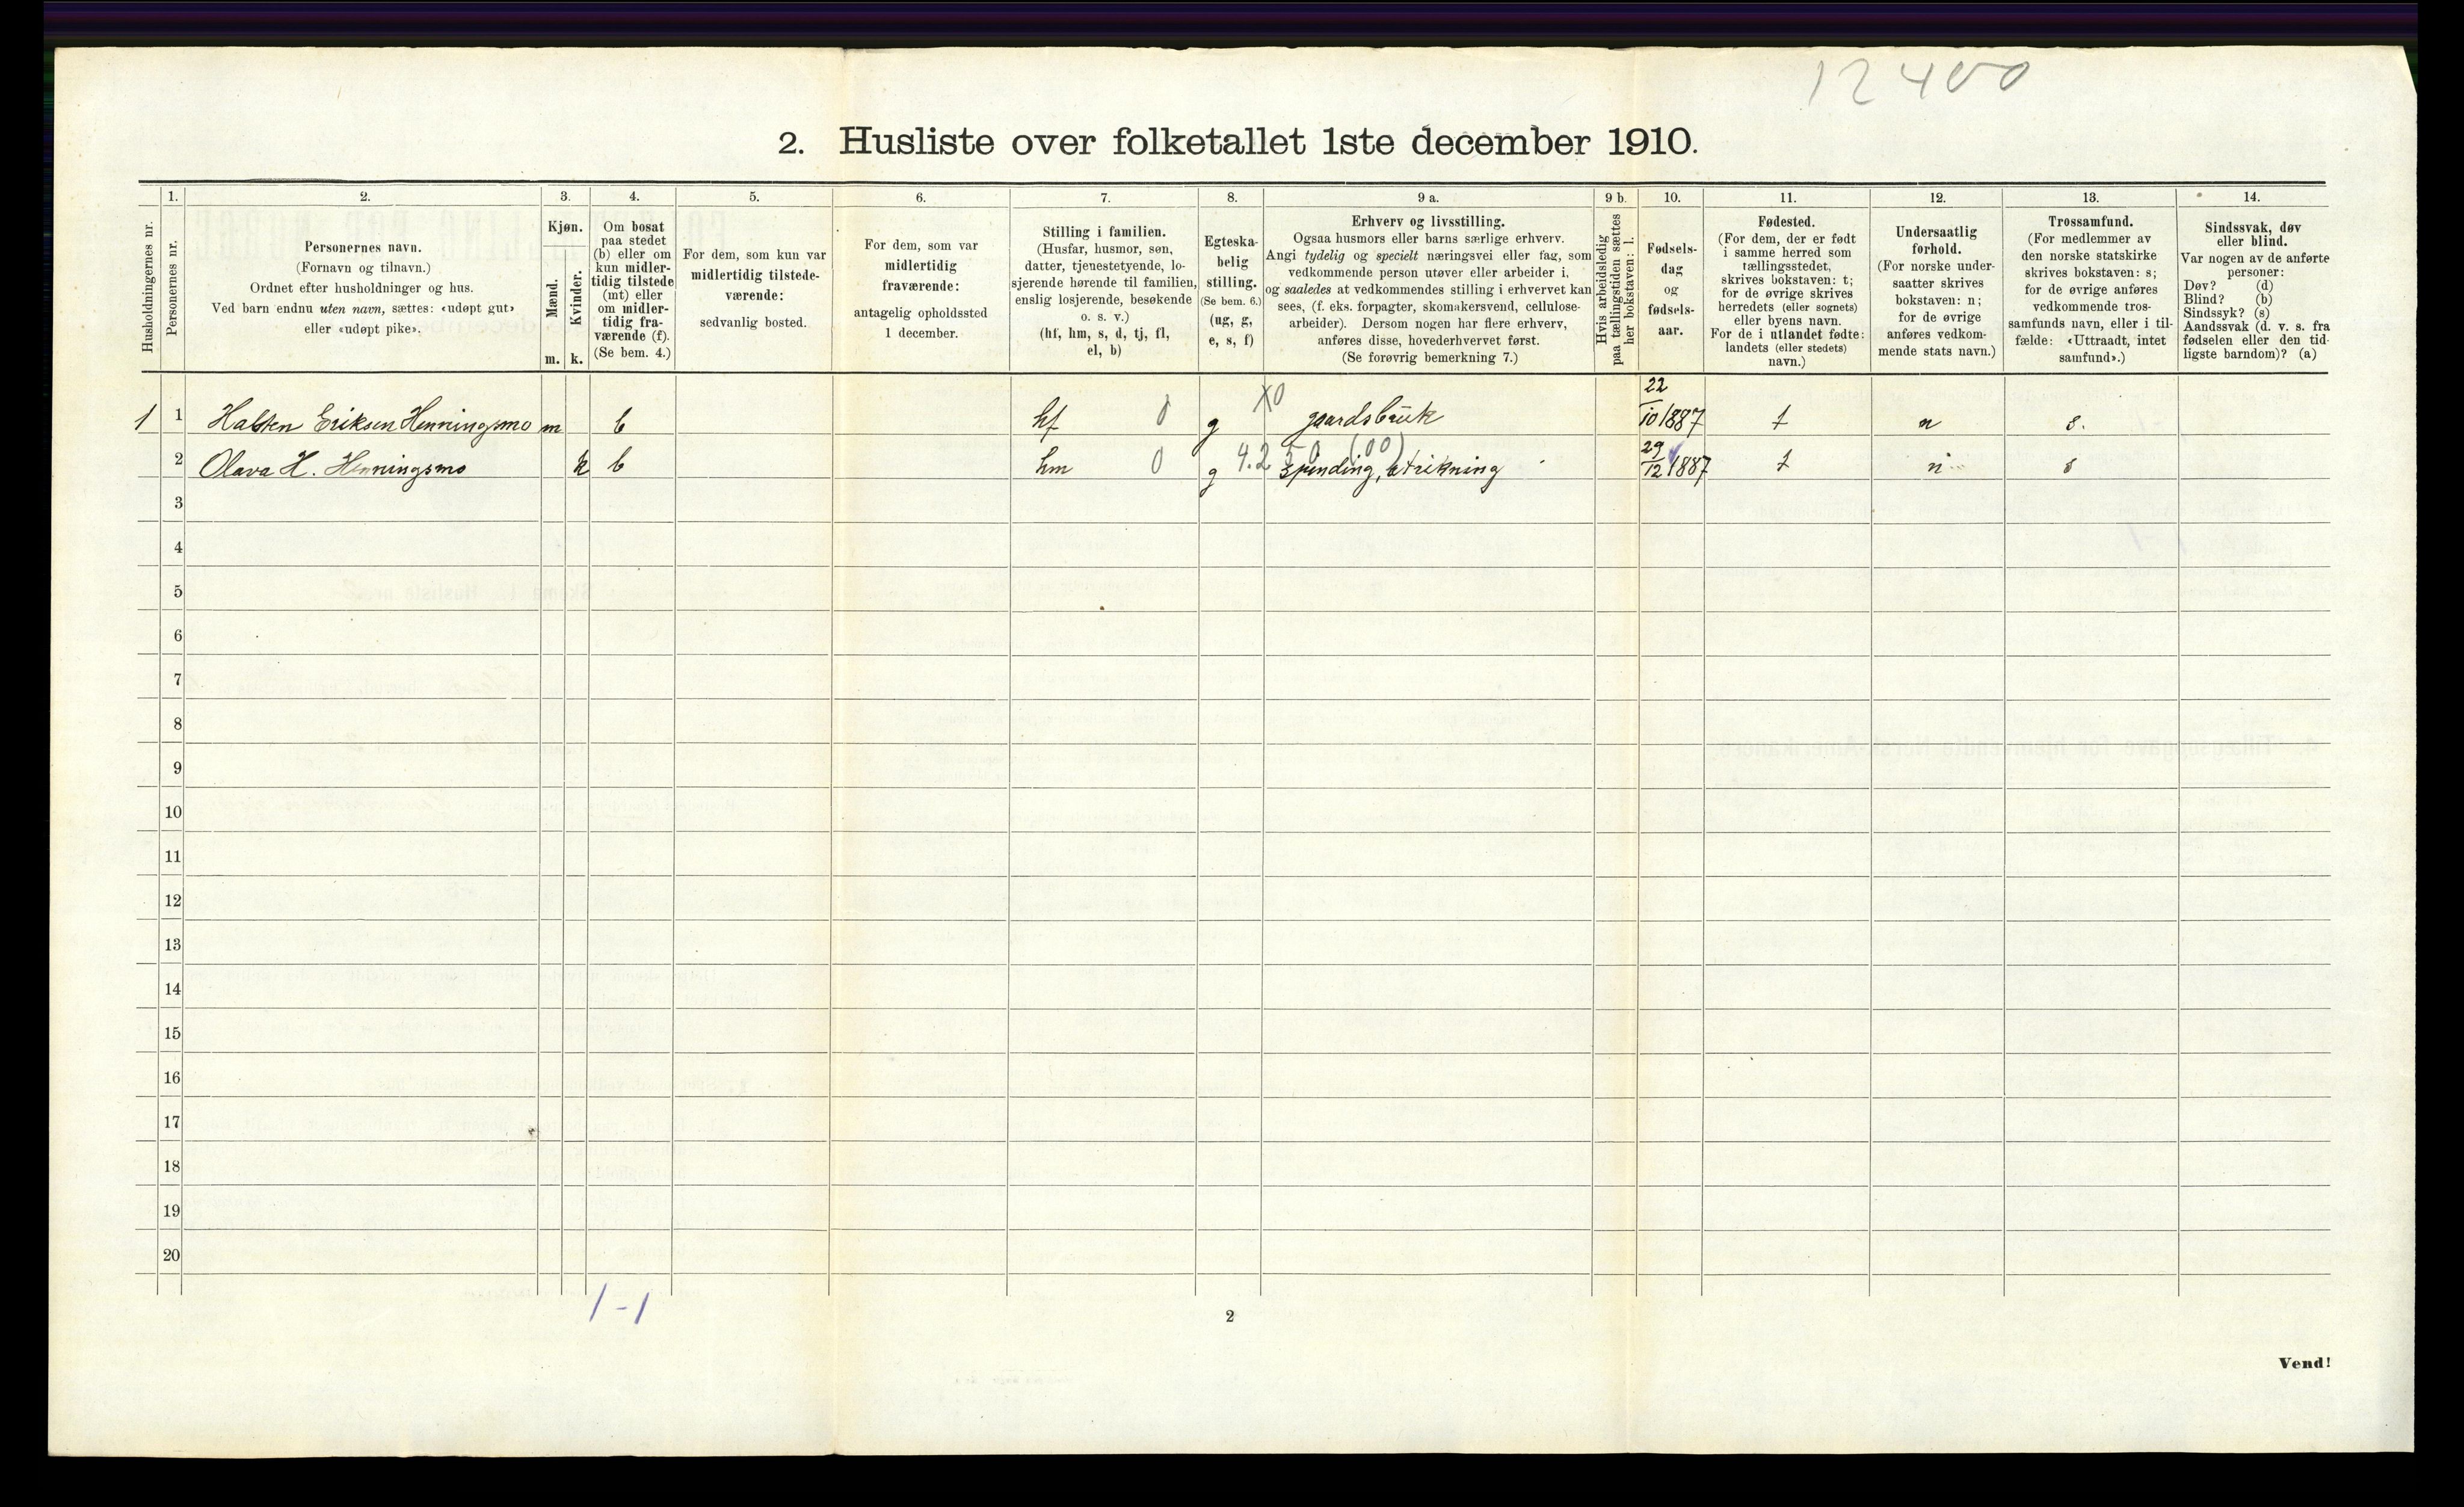 12400
2. Husliste over folketallet 1ste december 1910.
1. 2. 3. 4. 5. 6. 7. 8. 9 a. 9 b. 10. 11. 12. 13. 14.
Husholdningernes nr.
Personernes nr.
Personernes navn.
(Fornavn og tilnavn.)
Ordnet efter husholdninger og hus.
Ved barn endnu uten navn, sættes: «udøpt gut»
eller «udøpt pike».
Kjøn.
Mænd.
Kvinder.
m. k.
Om bosat
paa stedet
(b) eller om
kun midler-
tidig tilstede
(mt) eller
om midler-
tidig fra-
værende (f).
(Se bem. 4.)
For dem, som kun var
midlertidig tilstede-
værende:
sedvanlig bosted.
For dem, som var
midlertidig
fraværende:
antagelig opholdssted
1 december.
Stilling i familien.
(Husfar, husmor, søn,
datter, tjenestetyende, lo-
sjerende hørende til familien,
enslig losjerende, besøkende
o. s. v.)
(hf, hm, s, d, tj, fl,
el, b)
Egteska-
belig
stilling.
(Se bem. 6.)
(ug, g,
e, s, f)
Erhverv og livsstilling.
Ogsaa husmors eller barns særlige erhverv.
Angi tydelig og specielt næringsvei eller fag, som
vedkommende person utøver eller arbeider i,
og saaledes at vedkommendes stilling i erhvervet kan
sees, (f. eks. forpagter, skomakersvend, cellulose-
arbeider). Dersom nogen har flere erhverv,
anføres disse, hovederhvervet først.
(Se forøvrig bemerkning 7.)
Hvis arbeidsledig
paa tællingstiden sættes
her bokstaven: l.
Fødsels-
dag
og
fødsels-
aar.
Fødested.
(For dem, der er født
i samme herred som
tællingsstedet,
skrives bokstaven: t;
for de øvrige skrives
herredets (eller sognets)
eller byens navn.
For de i utlandet fødte:
landets (eller stedets)
navn.)
Undersaatlig
forhold.
(For norske under-
saatter skrives
bokstaven: n;
for de øvrige
anføres vedkom-
mende stats navn.)
Trossamfund.
(For medlemmer av
den norske statskirke
skrives bokstaven: s;
for de øvrige anføres
vedkommende tros-
samfunds navn, eller i til-
fælde: «Uttraadt, intet
samfund».)
Sindssvak, døv
eller blind.
Var nogen av de anførte
personer:
Døv? (d)
Blind? (b)
Sindssyk? (s)
Aandssvak (d. v. s. fra
fødselen eller den tid-
ligste barndom)? (a)
1 1 Halsten Eriksen Henningsmo m b hf 0 g X0 gaardsbruk 22/10 1887 t n s.
2 Olava H. Henningsmo k b hm 0 g 4.2 50 (00) spinding, strikning 29/12 1887 t n s
3
4
5
6
7
8
9
10
11
12
13
14
15
16
17
18
19
20
1-1
2
Vend!